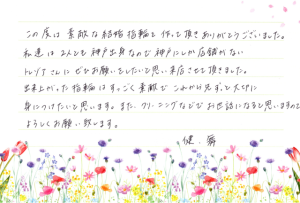 この度は素敵な結婚指輪を作って頂きありがとうございました。
私達は2人とも神戸出身なので神戸にしか店舗がない
トレゾアさんにぜひお願いをしたいと思い来店させて頂きました。
出来上がった指輪はすっごく素敵で これから先ずっと大切に
身につけたいと思います。また、クリーニングなどでお世話になると思いますので
よろしくお願い致します。
健・舞